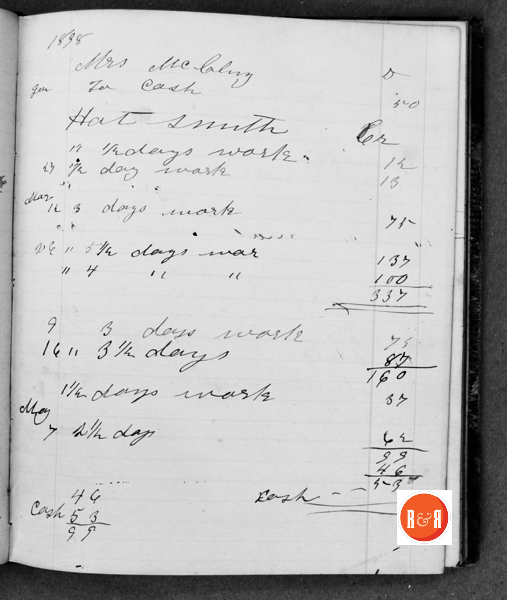 1898
Mrs McCluy D
Jan To Cash 50
Hat Smith Cr
" 1/2 days work 12
27 1/2 day work 13
Mar
12 3 days work 75
26 " 5 1/2 days wor 137
" 4 " " 100
337
9 3 days work 75
16 " 3 1/2 days 87
160
1 1/2 days work 37
May
7 2 1/2 days 62
99
46
53
cash - -
46
Cash 53
99
R&R